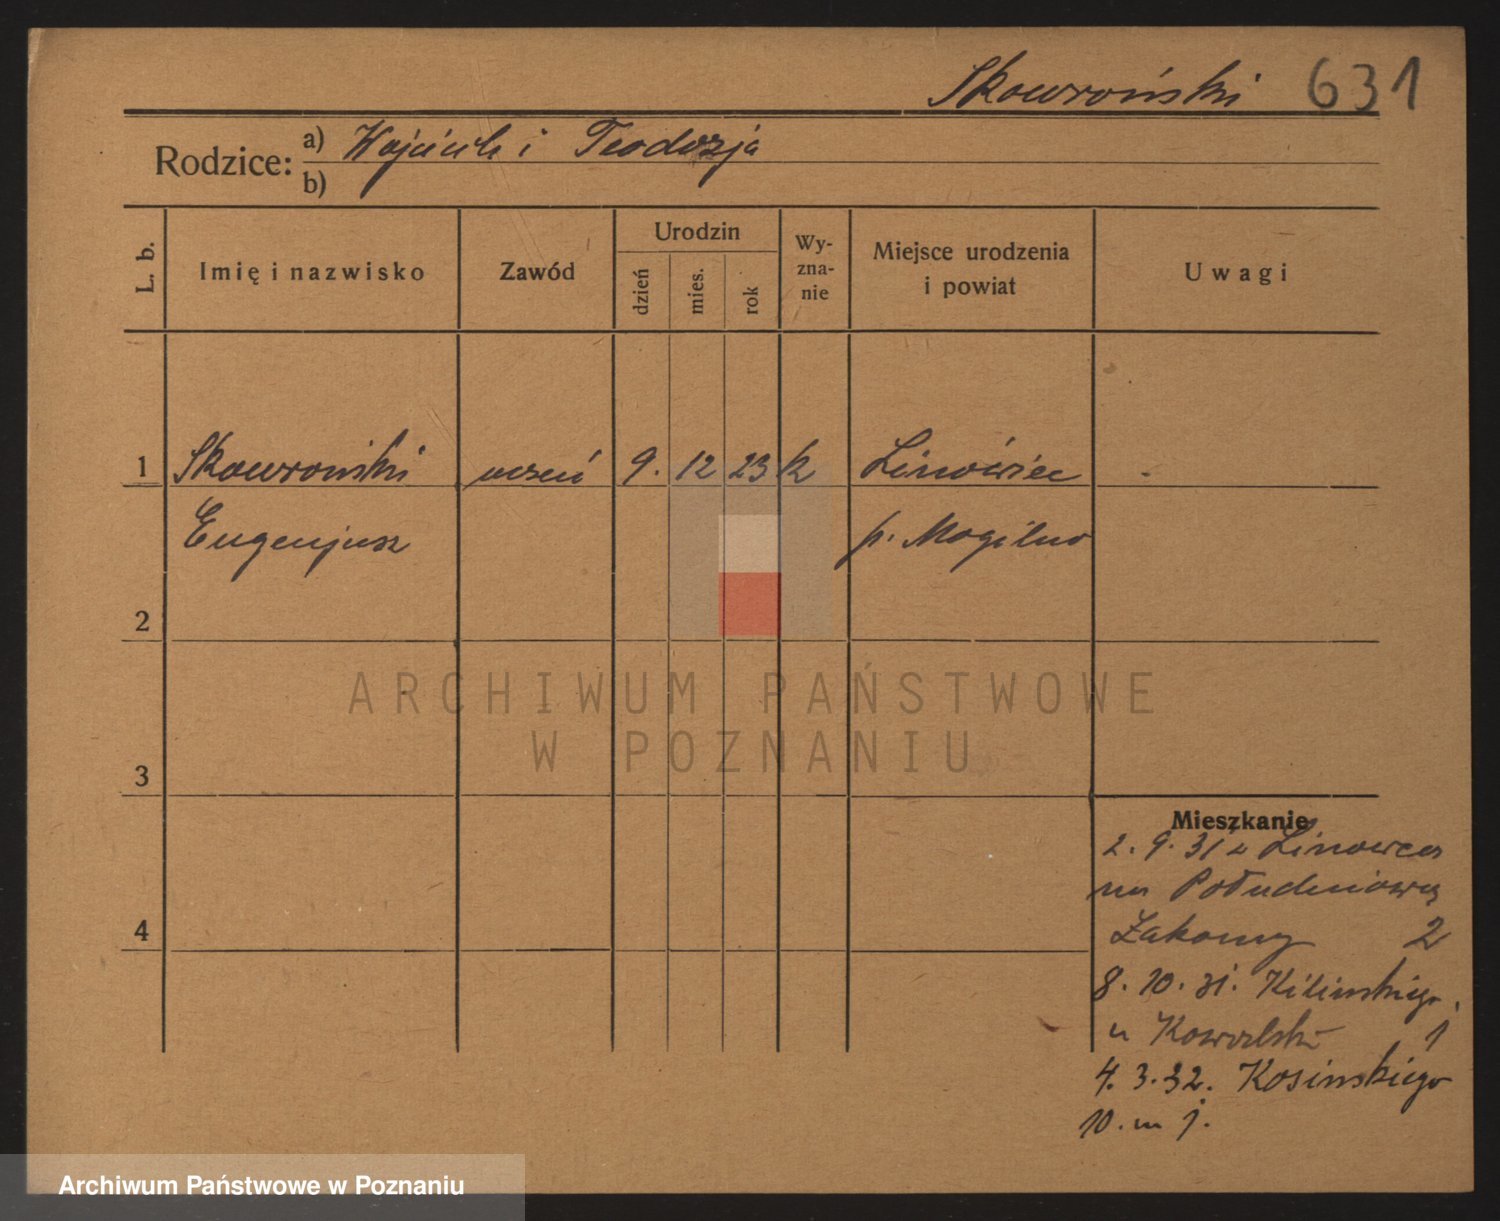 Skowroński 631
Rodzice: a) Wojciech i Teodozja
b)
L. b. Imię i nazwisko Zawód Urodzin dzień mies. rok Wy-zna-nie Miejsce urodzenia i powiat Uwagi
1 Skowroński uczeń 9. 12 23 k Linówiec
Eugenjusz p. Mogilno
2
3
4
Mieszkanie
2. 9. 31 z Linowca
na Południową
2
8. 10. 31. Kilińskiego
u Kowalski 1
4. 3. 32. Kosińskiego
10. m j.
ARCHIWUM PAŃSTWOWE
W POZNANIU
Archiwum Państwowe w Poznaniu